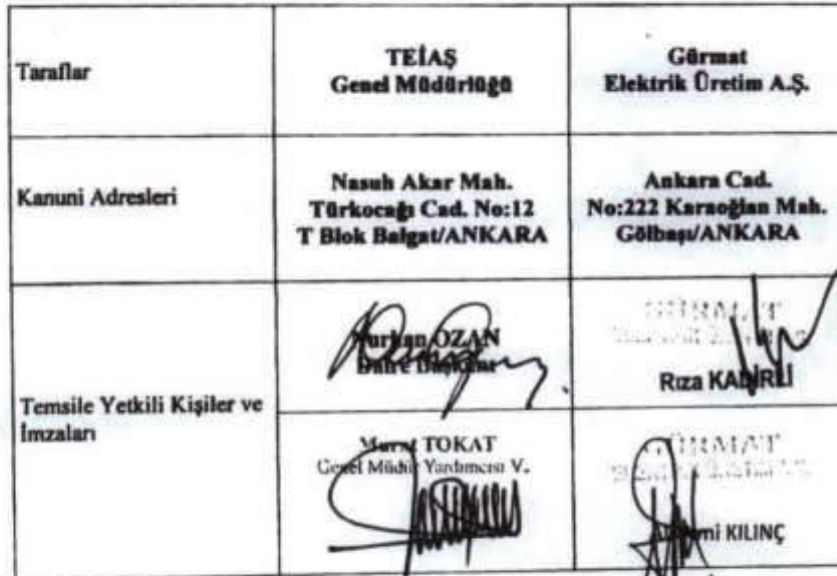 Taraflar
TEİAŞ
Genel Müdürlüğü
Gürmat
Elektrik Üretim A.Ş.
Kanuni Adresleri
Nasuh Akar Mah.
Türkocağı Cad. No:12
T Blok Balgat/ANKARA
Ankara Cad.
No:222 Karaoğlan Mah.
Gölbaşı/ANKARA
Temsile Yetkili Kişiler ve
İmzaları
Nurhan OZAN
Daire Başkanı
GÜRMAT
Rıza KADİRLİ
Murat TOKAT
Genel Müdür Yardımcısı V.
GÜRMAT
KILINÇ